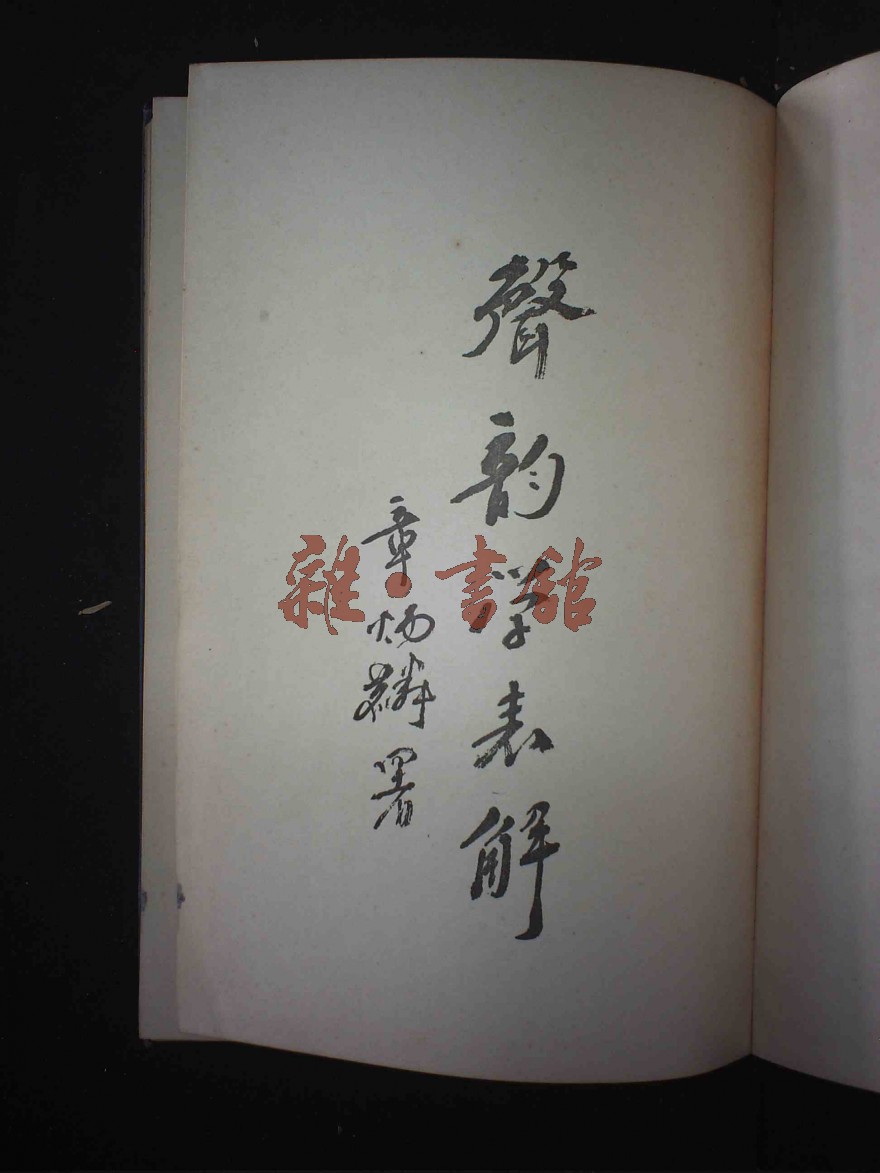 聲韵学表解
章炳麟署
雜·書館